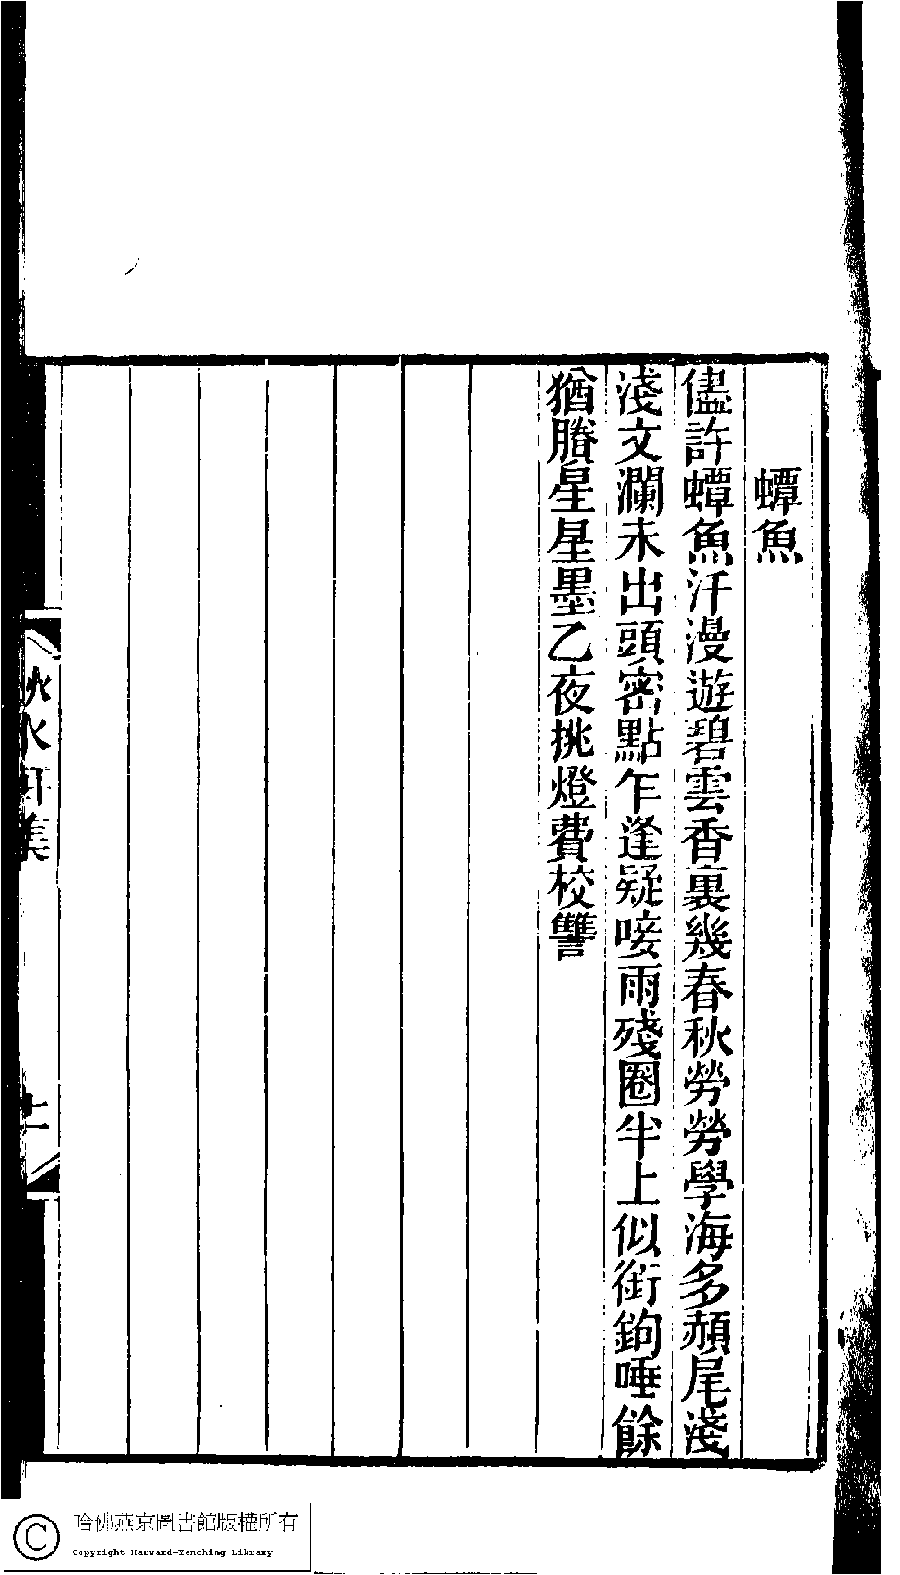 蟫魚
儘許蟫魚汗漫遊碧雲香裏幾春秋勞勞學海多頳尾淺
淺文瀾未出頭密點乍逢疑唼雨殘圈半上似銜鉤唾餘
猶賸星星墨乙夜挑燈費校讐
秋水軒集
哈佛燕京圖書館版權所有
Copyright Harvard-Yenching Library